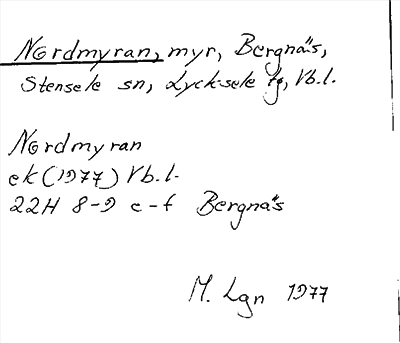 Nordmyran, myr, Bergnäs,
Stensele sn, Lycksele tg, Vb.l.
Nordmyran
ek (1977) Vb.l.
22H 8-9 e-f Bergnäs
M. Lgn 1977